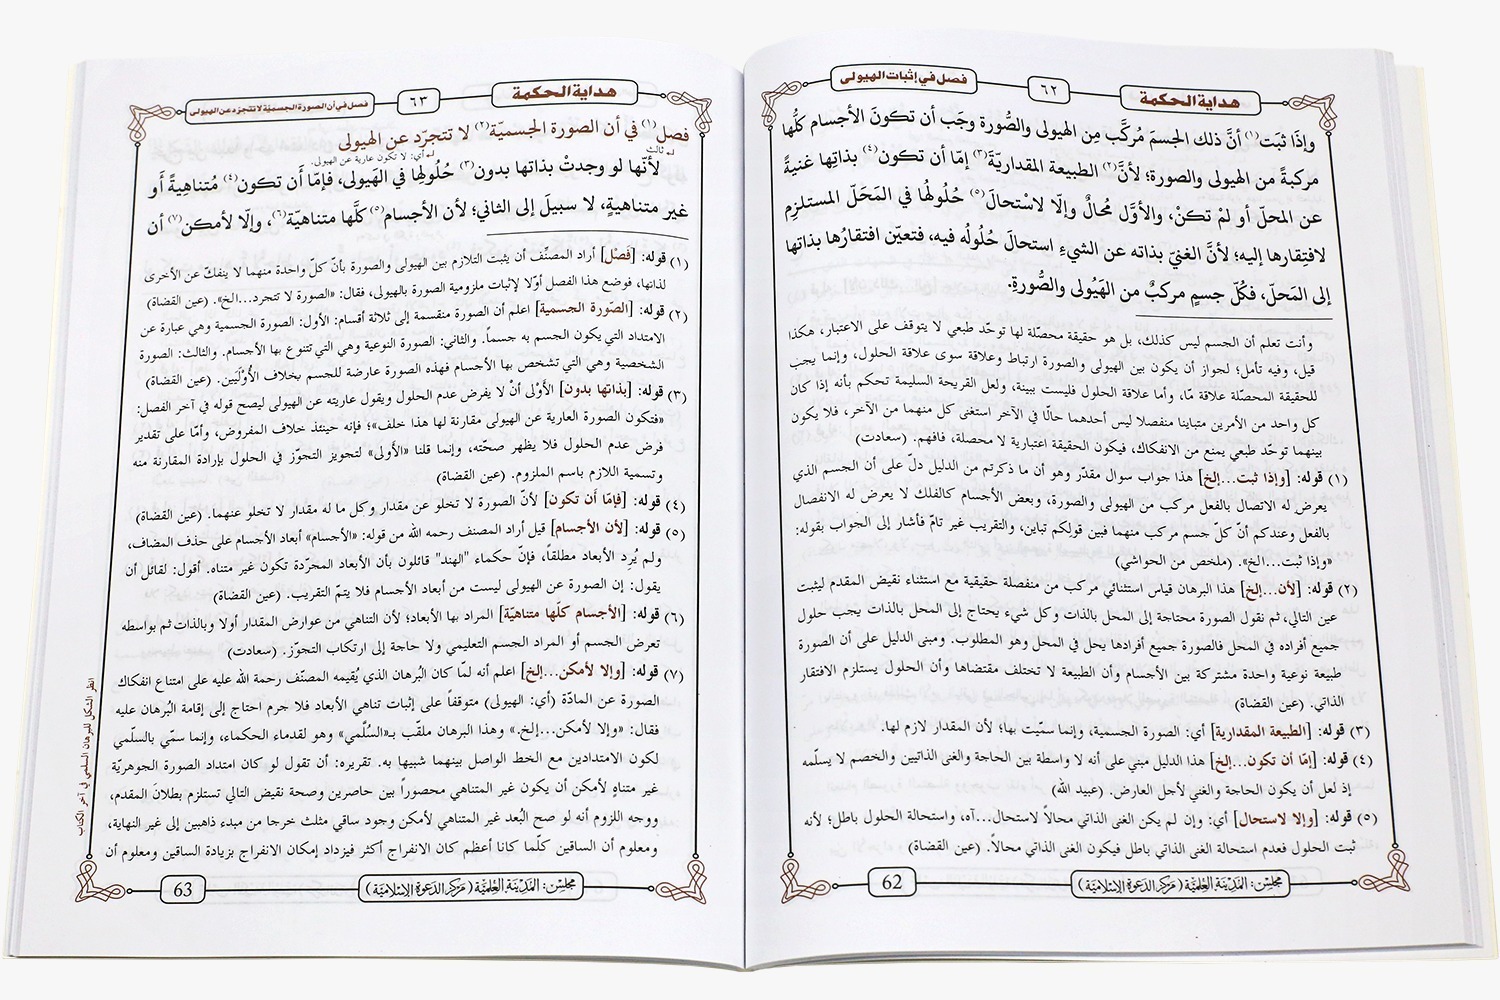 هداية الحكمة
٦٢
فصل في إثبات الهيولى
وإذَا ثبَت (١) أنَّ ذلك الجسمَ مُركَّب مِن الهيولى والصُّورة وجَب أن تكونَ الأجسام كلُّها
مركبةً من الهيولى والصورة؛ لأنَّ (٢) الطبيعة المقداريّةَ (٣) إمّا أن تكون (٤) بذاتِها غنيةً
عن المحلّ أو لمْ تكنْ، والأوَّل مُحالٌ وإلّا لاسْتحالَ (٥) حُلُولُها في المَحَلّ المستلزِم
لافتِقارها إليه؛ لأنَّ الغنيّ بذاته عن الشيءِ استحالَ حُلُولُه فيه، فتعيّن افتقارُها بذاتها
إلى المَحلّ، فكُلّ جسمٍ مركبٌ من الهَيُولى والصُّورة.
وأنت تعلم أن الجسم ليس كذلك، بل هو حقيقة محصّلة لها توحّد طبعي لا يتوقف على الاعتبار، هكذا
قيل، وفيه تأمل؛ لجواز أن يكون بين الهيولى والصورة ارتباط وعلاقة سوى علاقة الحلول، وإنما يجب
للحقيقة المحصّلة علاقة مّا، وأما علاقة الحلول فليست ببينة، ولعل القريحة السليمة تحكم بأنه إذا كان
كل واحد من الأمرين متباينا منفصلا ليس أحدهما حالّا في الآخر استغنى كل منهما من الآخر، فلا يكون
بينهما توحّد طبعي يمنع من الانفكاك، فيكون الحقيقة اعتبارية لا محصلة، فافهم. (سعادت)
(١) قوله: [وإذا ثبت...إلخ] هذا جواب سوال مقدّر وهو أن ما ذكرتم من الدليل دلّ على أن الجسم الذي
يعرض له الاتصال بالفعل مركب من الهيولى والصورة، وبعض الأجسام كالفلك لا يعرض له الانفصال
بالفعل وعندكم أنّ كلّ جسم مركب منهما فبين قولكم تباين، والتقريب غير تامّ فأشار إلى الجواب بقوله:
«وإذا ثبت...الخ». (ملخص من الحواشي)
(٢) قوله: [لأن...إلخ] هذا البرهان قياس استثنائي مركب من منفصلة حقيقية مع استثناء نقيض المقدم ليثبت
عين التالي، ثم نقول الصورة محتاجة إلى المحل بالذات وكل شيء يحتاج إلى المحل بالذات يجب حلول
جميع أفراده في المحل فالصورة جميع أفرادها يحل في المحل وهو المطلوب. ومبنى الدليل على أن الصورة
طبيعة نوعية واحدة مشتركة بين الأجسام وأن الطبيعة لا تختلف مقتضاها وأن الحلول يستلزم الافتقار
الذاتي. (عين القضاة)
(٣) قوله: [الطبيعة المقدارية] أي: الصورة الجسمية، وإنما سمّيت بها؛ لأن المقدار لازم لها.
(٤) قوله: [إمّا أن تكون...إلخ] هذا الدليل مبني على أنه لا واسطة بين الحاجة والغنى الذاتيين والخصم لا يسلّمه
إذ لعل أن يكون الحاجة والغنى لأجل العارض. (عبيد الله)
(٥) قوله: [وإلا لاستحال] أي: وإن لم يكن الغنى الذاتي محالاً لاستحال...آه، واستحالة الحلول باطل؛ لأنه
ثبت الحلول فعدم استحالة الغنى الذاتي باطل فيكون الغنى الذاتي محالاً. (عين القضاة)
مجلس: المَدِيْنَة العِلْمِيَّة (مَركز الدَعوَة الإسْلَامِيَّة)
62
هداية الحكمة
٦٣
فصل في أن الصورة الجسميّة لا تتجرّد عن الهيولى
فصل (١) في أن الصورة الجسميّة (٢) لا تتجرّد عن الهيولى
ثالث
أي: لا تكون عارية عن الهيولى.
لأنّها لو وجدتْ بذاتها بدون (٣) حُلُولها في الهَيولى، فإمّا أَن تكون (٤) مُتناهيةً أو
غير متناهيةٍ، لا سبيلَ إلى الثاني؛ لأن الأجسام (٥) كلَّها متناهيّة (٦)، وإلّا لأمكن (٧) أن
(١) قوله: [فَصْل] أراد المصنِّف أن يثبت التلازم بين الهيولى والصورة بأنّ كلّ واحدة منهما لا ينفكّ عن الأخرى
لذاتها، فوضع هذا الفصل أوّلا لإثبات ملزومية الصورة بالهيولى، فقال: «الصورة لا تتجرد...الخ». (عين القضاة)
(٢) قوله: [الصّورة الجسمية] اعلم أن الصورة منقسمة إلى ثلاثة أقسام: الأول: الصورة الجسمية وهي عبارة عن
الامتداد التي يكون الجسم به جسماً. والثاني: الصورة النوعية وهي التي تتنوع بها الأجسام. والثالث: الصورة
الشخصية وهي التي تشخص بها الأجسام فهذه الصورة عارضة للجسم بخلاف الأُوْلَيين. (عين القضاة)
(٣) قوله: [بذاتها بدون] الأَوْلى أنْ لا يفرض عدم الحلول ويقول عاريته عن الهيولى ليصح قوله في آخر الفصل:
«فتكون الصورة العارية عن الهيولى مقارنة لها هذا خلف»؛ فإنه حينئذ خلاف المفروض، وأمّا على تقدير
فرض عدم الحلول فلا يظهر صحّته، وإنما قلنا «الأولى» لتجويز التجوّز في الحلول بإرادة المقارنة منه
وتسمية اللازم باسم الملزوم. (عين القضاة)
(٤) قوله: [فإمّا أن تكون] لأنّ الصورة لا تخلو عن مقدار وكل ما له مقدار لا تخلو عنهما. (عين القضاة)
(٥) قوله: [لأن الأجسام] قيل أراد المصنف رحمه الله من قوله: «الأجسام» أبعاد الأجسام على حذف المضاف،
ولم يُرِد الأبعاد مطلقاً، فإنّ حكماء "الهند" قائلون بأن الأبعاد المجرّدة تكون غير متناه. أقول: لقائل أن
يقول: إن الصورة عن الهيولى ليست من أبعاد الأجسام فلا يتمّ التقريب. (عين القضاة)
(٦) قوله: [الأجسام كلّها متناهيّة] المراد بها الأبعاد؛ لأن التناهي من عوارض المقدار أولا وبالذات ثم بواسطه
تعرض الجسم أو المراد الجسم التعليمي ولا حاجة إلى ارتكاب التجوّز. (سعادت)
(٧) قوله: [وإلا لأمكن...إلخ] اعلم أنه لمّا كان البُرهان الذي يُقيمه المصنّف رحمة الله عليه على امتناع انفكاك
الصورة عن المادّة (أي: الهيولى) متوقفاً على إثبات تناهي الأبعاد فلا جرم احتاج إلى إقامة البُرهان عليه
فقال: «وإلا لأمكن...إلخ.» وهذا البرهان ملقّب بـ«السُلَّمي» وهو لقدماء الحكماء، وإنما سمّي بالسلّمي
لكون الامتدادين مع الخط الواصل بينهما شبيها به. تقريره: أن تقول لو كان امتداد الصورة الجوهريّة
غير متناهٍ لأمكن أن يكون غير المتناهي محصوراً بين حاصرين وصحة نقيض التالي تستلزم بطلانَ المقدم،
ووجه اللزوم أنه لو صح البُعد غير المتناهي لأمكن وجود ساقي مثلث خرجا من مبدء ذاهبين إلى غير النهاية،
ومعلوم أن الساقين كلّما كانا أعظم كان الانفراج أكثر فيزداد إمكان الانفراج بزيادة الساقين ومعلوم أن
انظر الشكل للبرهان السلمي في آخر الكتاب
مجلس: المَدِيْنَة العِلْمِيَّة (مَركز الدَعوَة الإسْلَامِيَّة)
63